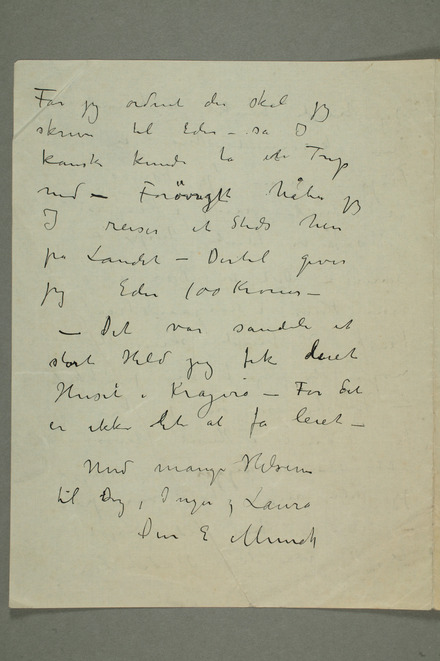 Får jeg ordnet det skal jeg
skrive til Eder – så I
kanske kunde ta etn Trip
ned – Forövrigt håber jeg
I reiser et Steds hen
på Landet – Dertil giver
jeg Eder 100 Kroner –
– Det var sandelig et
stort Held jeg fik leiet
Huset i Kragerø – For det
er ikke let at få leiet –
Med mange Hilsener
til Dig, Inger og Laura
Din E Munch